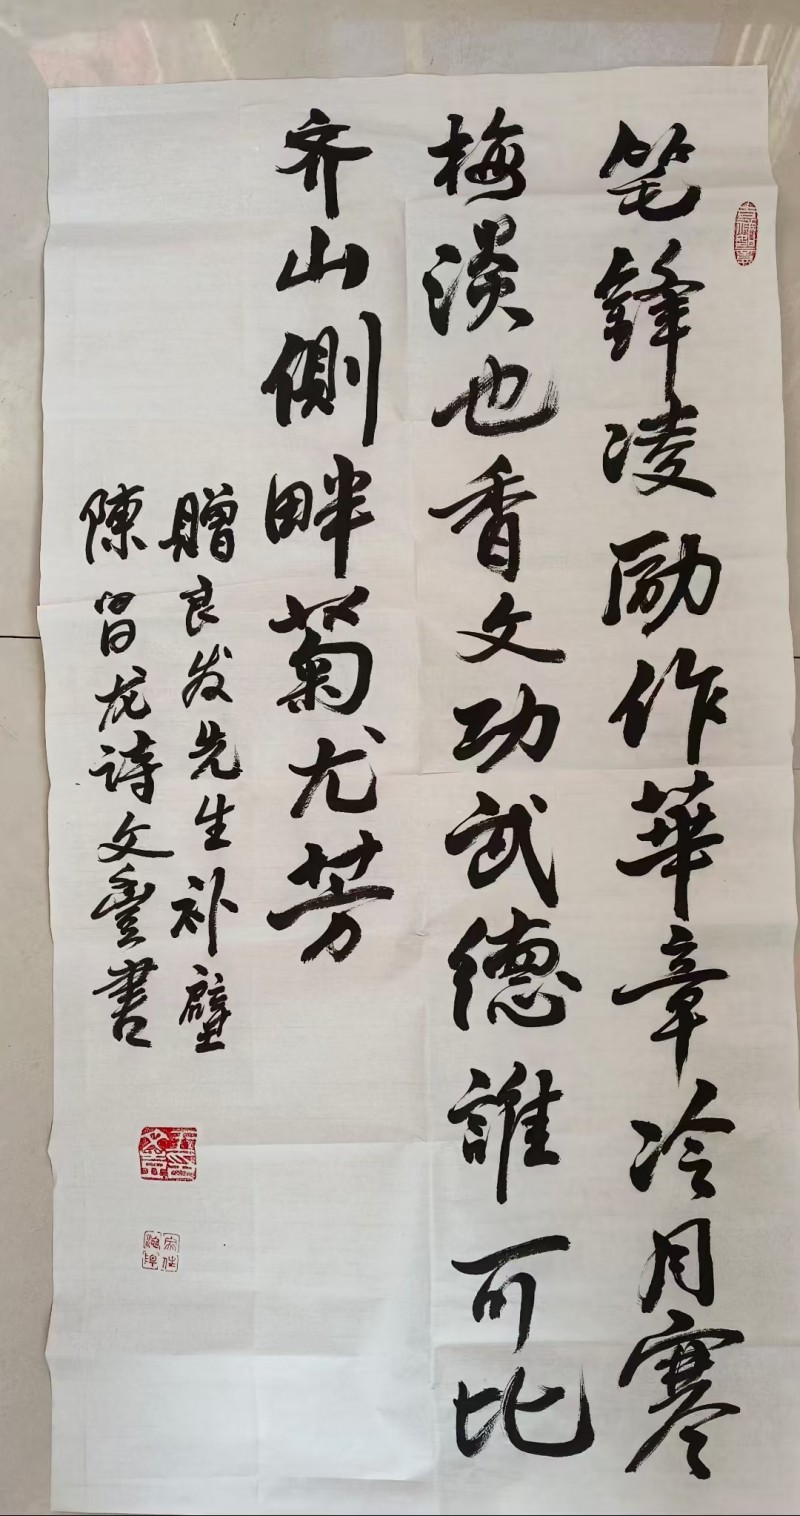 笔鋒凌励作華章冷月寒
梅淡也香文功武德誰可比
齐山側畔菊尤芳
贈良发先生补壁
陳曾龙诗文豐書